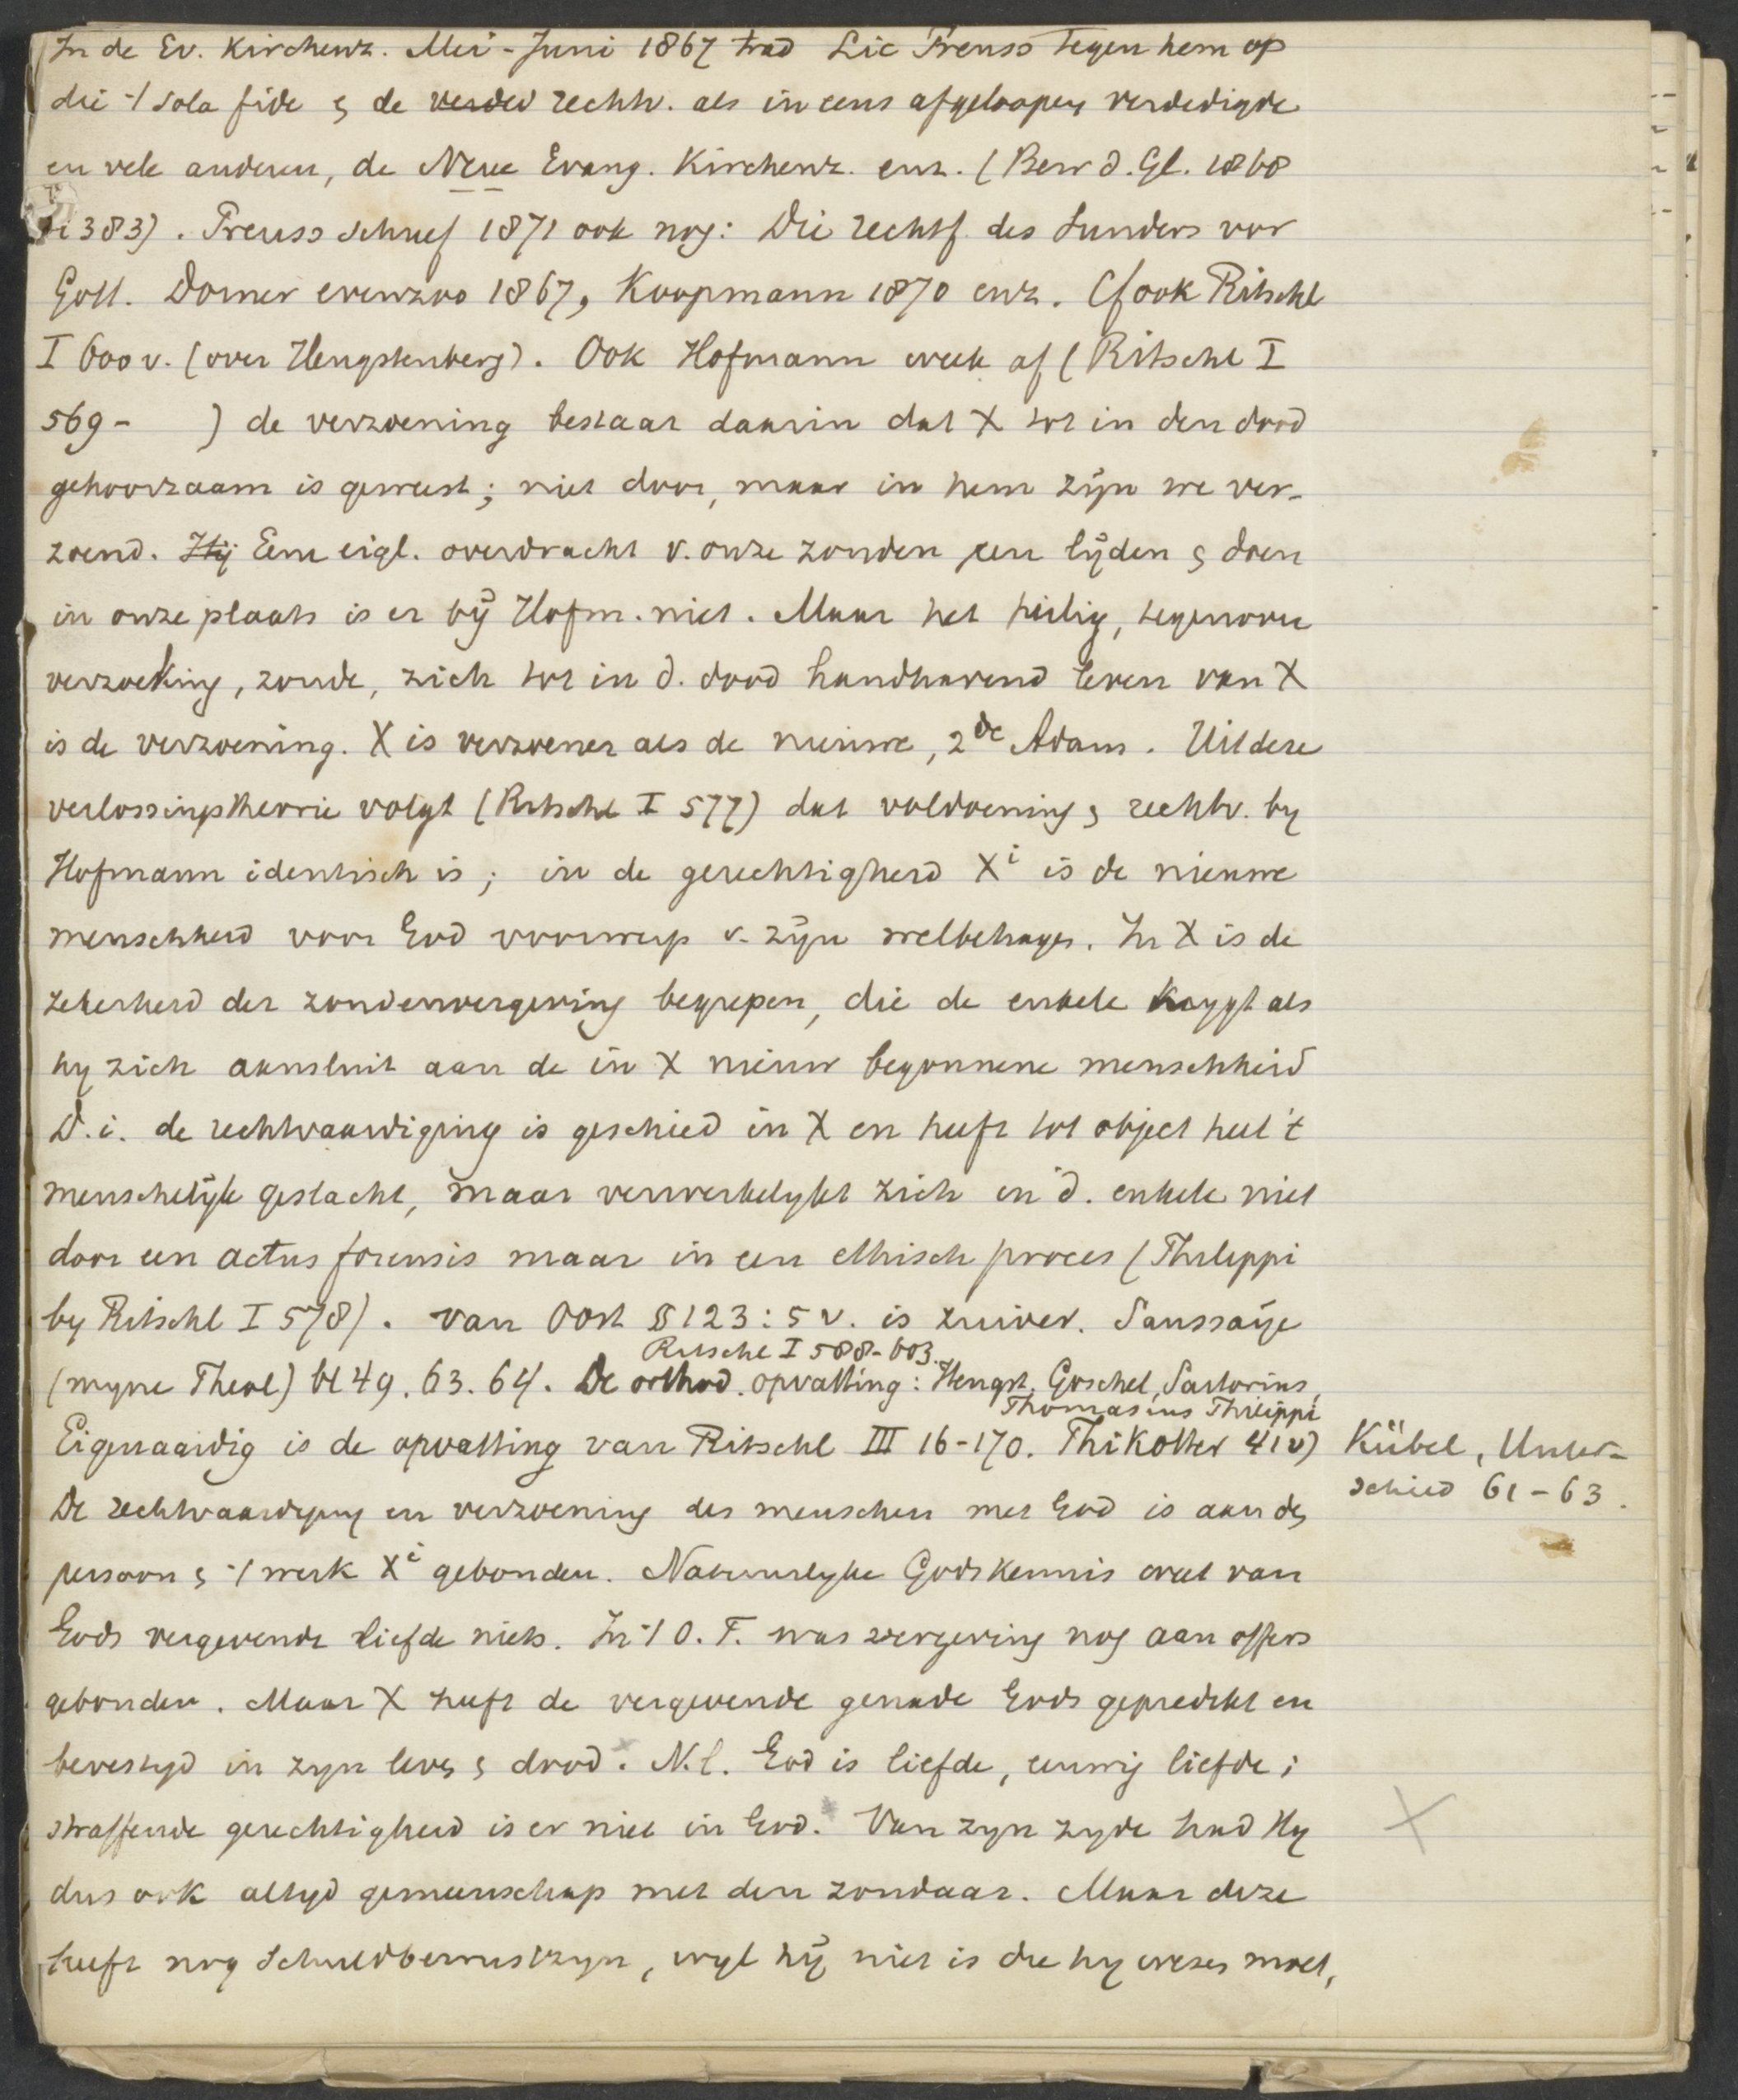 In de Ev. Kirchenz. Mei-Juni 1867 trad Lic Preuss tegen hem op
die 't sola fide & de verded rechtv. als in eens afgeloopen verdedigde
en vele anderen, de Neue Evang. Kirchenz. enz. (Bew d. Gl. 1868
i 383). Preuss schreef 1871 ook nog: Die rechtf. des Sunders vor
Gott. Dorner evenzoo 1867, Koopmann 1870 enz. Cf ook Ritschl
I 600 v. (over Hengstenberg). Ook Hofmann week af (Ritschl I
569- ) de verzoening bestaat daarin dat X tot in den dood
gehoorzaam is geweest; niet door, maar in hem zijn we ver-
zoend. Hij Eene eigl. overdracht v. onze zonden, een lijden & doen
in onze plaats is er bij Hofm. niet. Maar het heilig, tegenover
verzoeking, zonde, zich tot in d. dood handhavend leven van X
is de verzoening. X is verzoener als de nieuwe, 2de Adam. Uit deze
verlossingstheorie volgt (Ritschl I 577) dat voldoening & rechtv. by
Hofmann identisch is; in de gerechtigheid Xi is de nieuwe
menschheid voor God voorwerp v. zijn welbehagen. In X is de
zekerheid der zondenvergeving begrepen, die de enkele krygt als
hy zich aansluit aan de in X nieuw begonnene menschheid
D.i. de rechtvaardiging is geschied in X en heeft tot object heel 't
menschelijk geslacht, maar verwerkelykt zich in d. enkele niet
door een actus forensis maar in een ethisch proces (Philippi
by Ritschl I 578). van Oost § 123: 5 v. is zuiver. Saussaije
Ritschl I 588-603.
(myne Theol) bl 49. 63. 64. De orthod. opvatting: Hengst. Goschel, Sartorius,
Thomasius Philippi
Eigenaardig is de opvatting van Ritschl III 16-170. Thikotter 41 v)
Kübel, Unter-
schied 61-63.
De rechtvaardiging en verzoening des menschen met God is aan de
persoon & 't werk Xi gebonden. Natuurlyke Godskennis weet van
Gods vergevende liefde niets. In 't O.T. was vergeving nog aan offers
gebonden. Maar X heeft de vergevende genade Gods gepredikt en
bevestigd in zyn leven & dood. N.l. God is liefde, eeuwig liefde;
straffende gerechtigheid is er niet in God. Van zyn zyde had Hy
dus ook altyd gemeenschap met den zondaar. Maar deze
heeft nog schuldbewustzyn, wyl hij niet is die hy wezen moet,